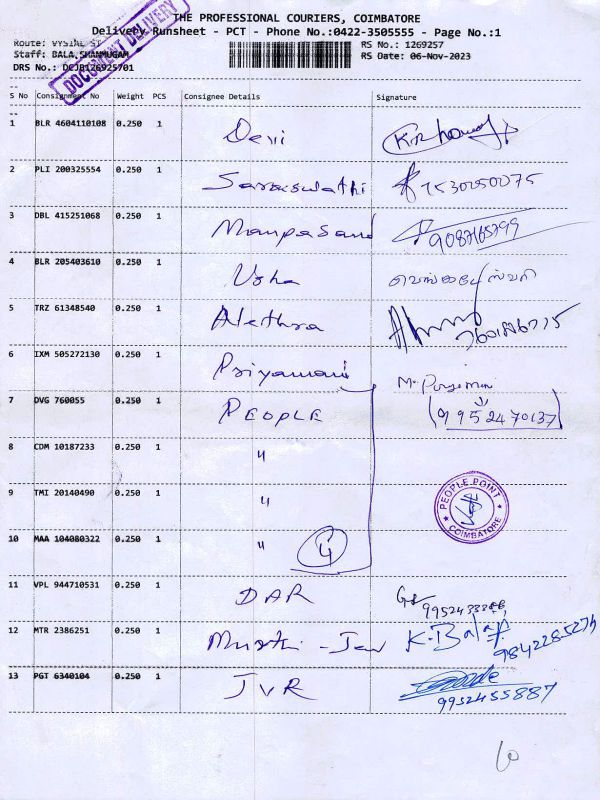 THE PROFESSIONAL COURIERS, COIMBATORE
Delivery Runsheet - PCT - Phone No.:0422-3505555 - Page No.:1
DOCUMENT DELIVERY
Route: VYSIAL ST RS No.: 1269257
Staff: BALA SHANMUGAM RS Date: 06-Nov-2023
DRS No.: DCJB126925701
S No Consignment No Weight PCS Consignee Details Signature
1 BLR 4604110108 0.250 1 Devi
2 PLI 200325554 0.250 1 Saraswathi 7530050075
3 DBL 415251068 0.250 1 Manpasand 9087165799
4 BLR 205403610 0.250 1 Usha
5 TRZ 61348540 0.250 1 Alethra
6 IXM 505272130 0.250 1 Priyamani
7 DVG 760055 0.250 1 PEOPLE (9952470137)
8 CDM 10187233 0.250 1 "
9 TMI 20140490 0.250 1 "
PEOPLE POINT
COIMBATORE
10 MAA 104080322 0.250 1 " 4
11 VPL 944710531 0.250 1 DAR
12 MTR 2386251 0.250 1 K.Balaji 9842285274
13 PGT 6340104 0.250 1 JVR 9952455887